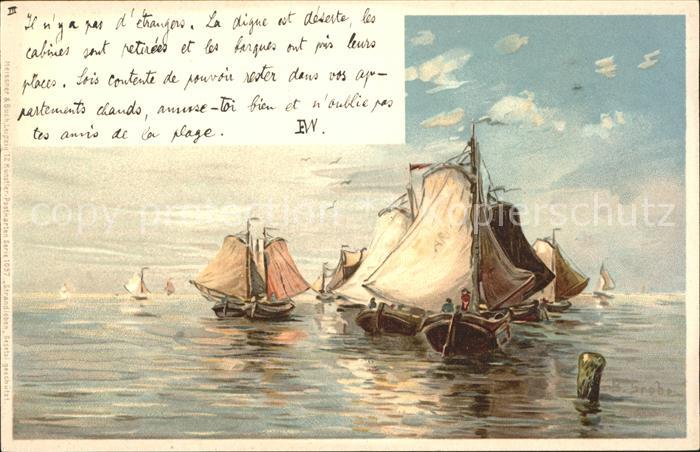 III
Il n'y a pas d'étrangers. La digue est déserte, les
cabines sont retirées et les barques ont pris leurs
places. Sois contente de pouvoir rester dans vos ap-
partements chauds, amuse-toi bien et n'oublie pas
tes amis de la plage. EW.
Meissner & Buch, Leipzig 12 Künstler-Postkarten Serie 1057 „Strandleben„ Gesetzl. geschützt.
copy protection * Kopierschutz
Grobe